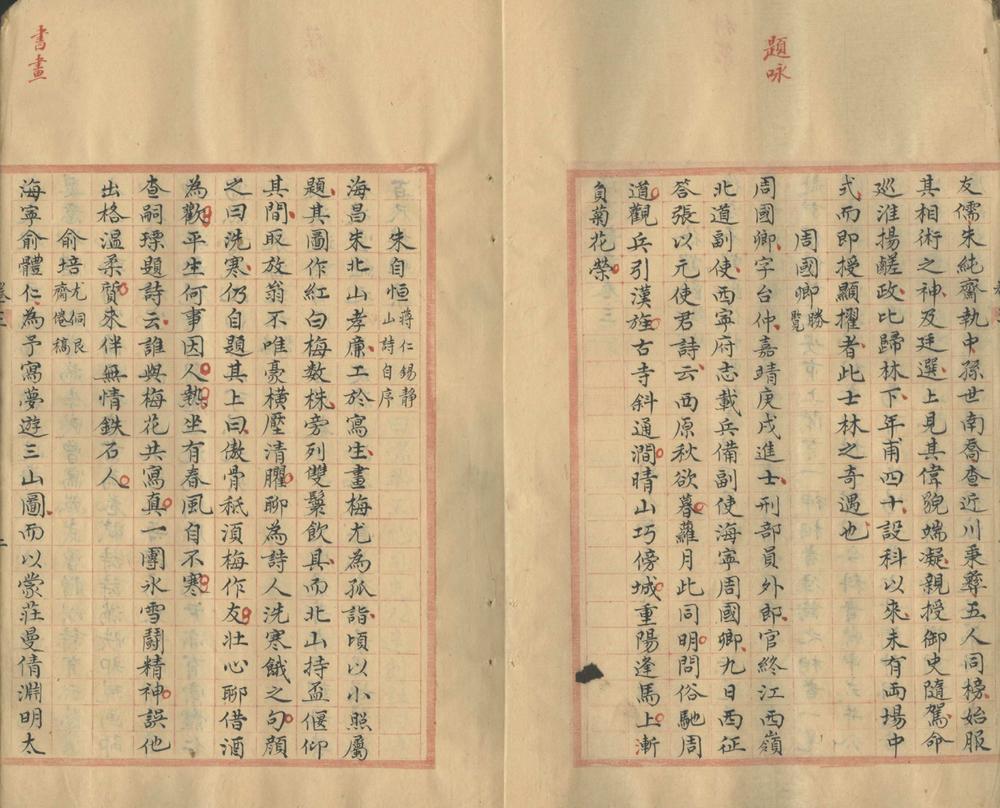 題咏
友儒朱純齋執中孫世南喬查近川秉彝五人同榜始服
其相術之神及廷選上見其偉貌端凝親授御史隨駕命
巡淮揚鹺政比歸林下年甫四十設科以來未有両場中
式而即授顯擢者此士林之奇遇也
周國卿勝覽
周國卿字台仲嘉靖庚戌進士刑部員外郎官終江西嶺
北道副使西寧府志載兵備副使海寧周國卿九日西征
答張以元使君詩云西原秋欲暮蘿月此同明問俗馳周
道觀兵引漢旌古寺斜通澗晴山巧傍城重陽逢馬上漸
負菊花榮
書畫
朱自恒蔣仁錫靜山詩自序
海昌朱北山孝廉工於寫生畫梅尤為孤詣頃以小照屬
題其圖作紅白梅数株旁列雙鬟飲具而北山持盃偃仰
其間取放翁不唯豪橫壓清臞聊為詩人洗寒餓之句顏
之曰洗寒仍自題其上曰傲骨秖湏梅作友壮心聊借酒
為歡平生何事因人熱坐有春風自不寒
查嗣瑮題詩云誰與梅花共寫真一團氷雪鬪精神誤他
出格温柔質來伴無情鉄石人
俞培尤侗艮齋倦稿
海寧俞體仁為予寫夢遊三山圖而以蒙莊曼倩淵明太